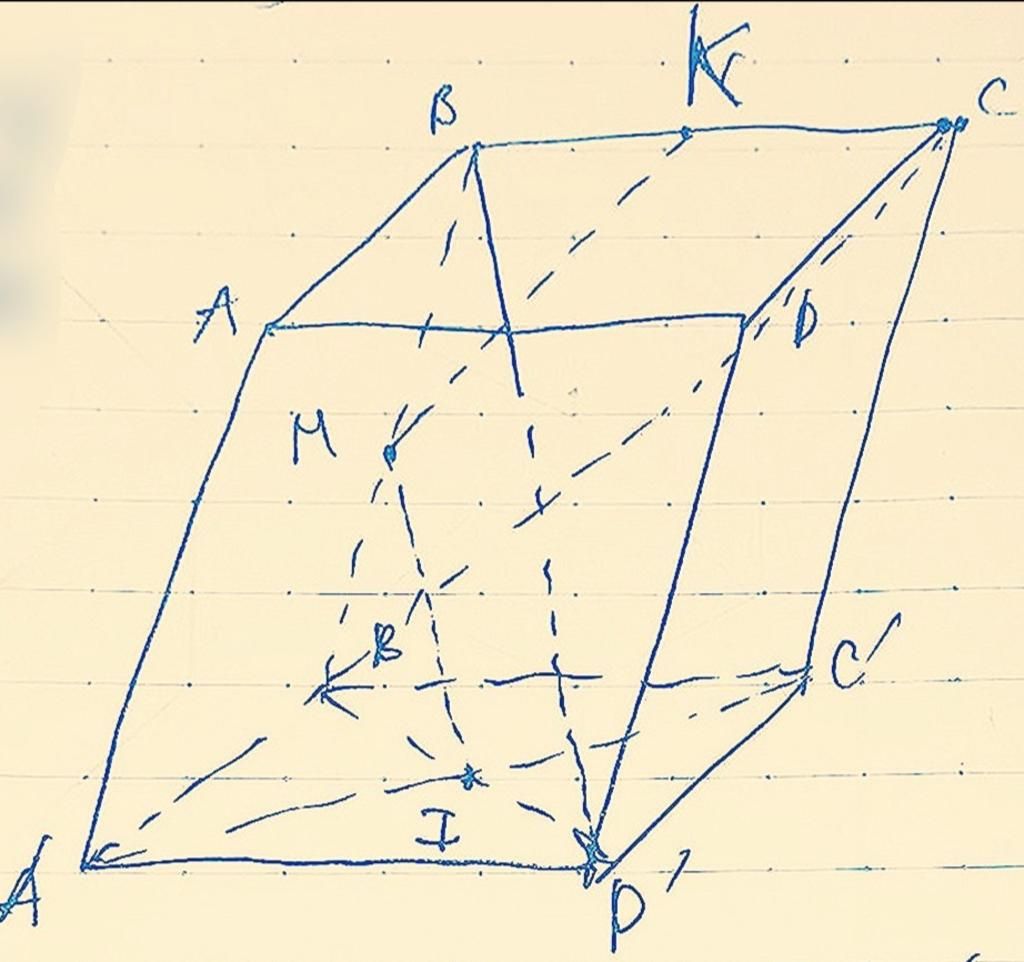 K
B
C
A
D
M
B
C'
I
A'
D'